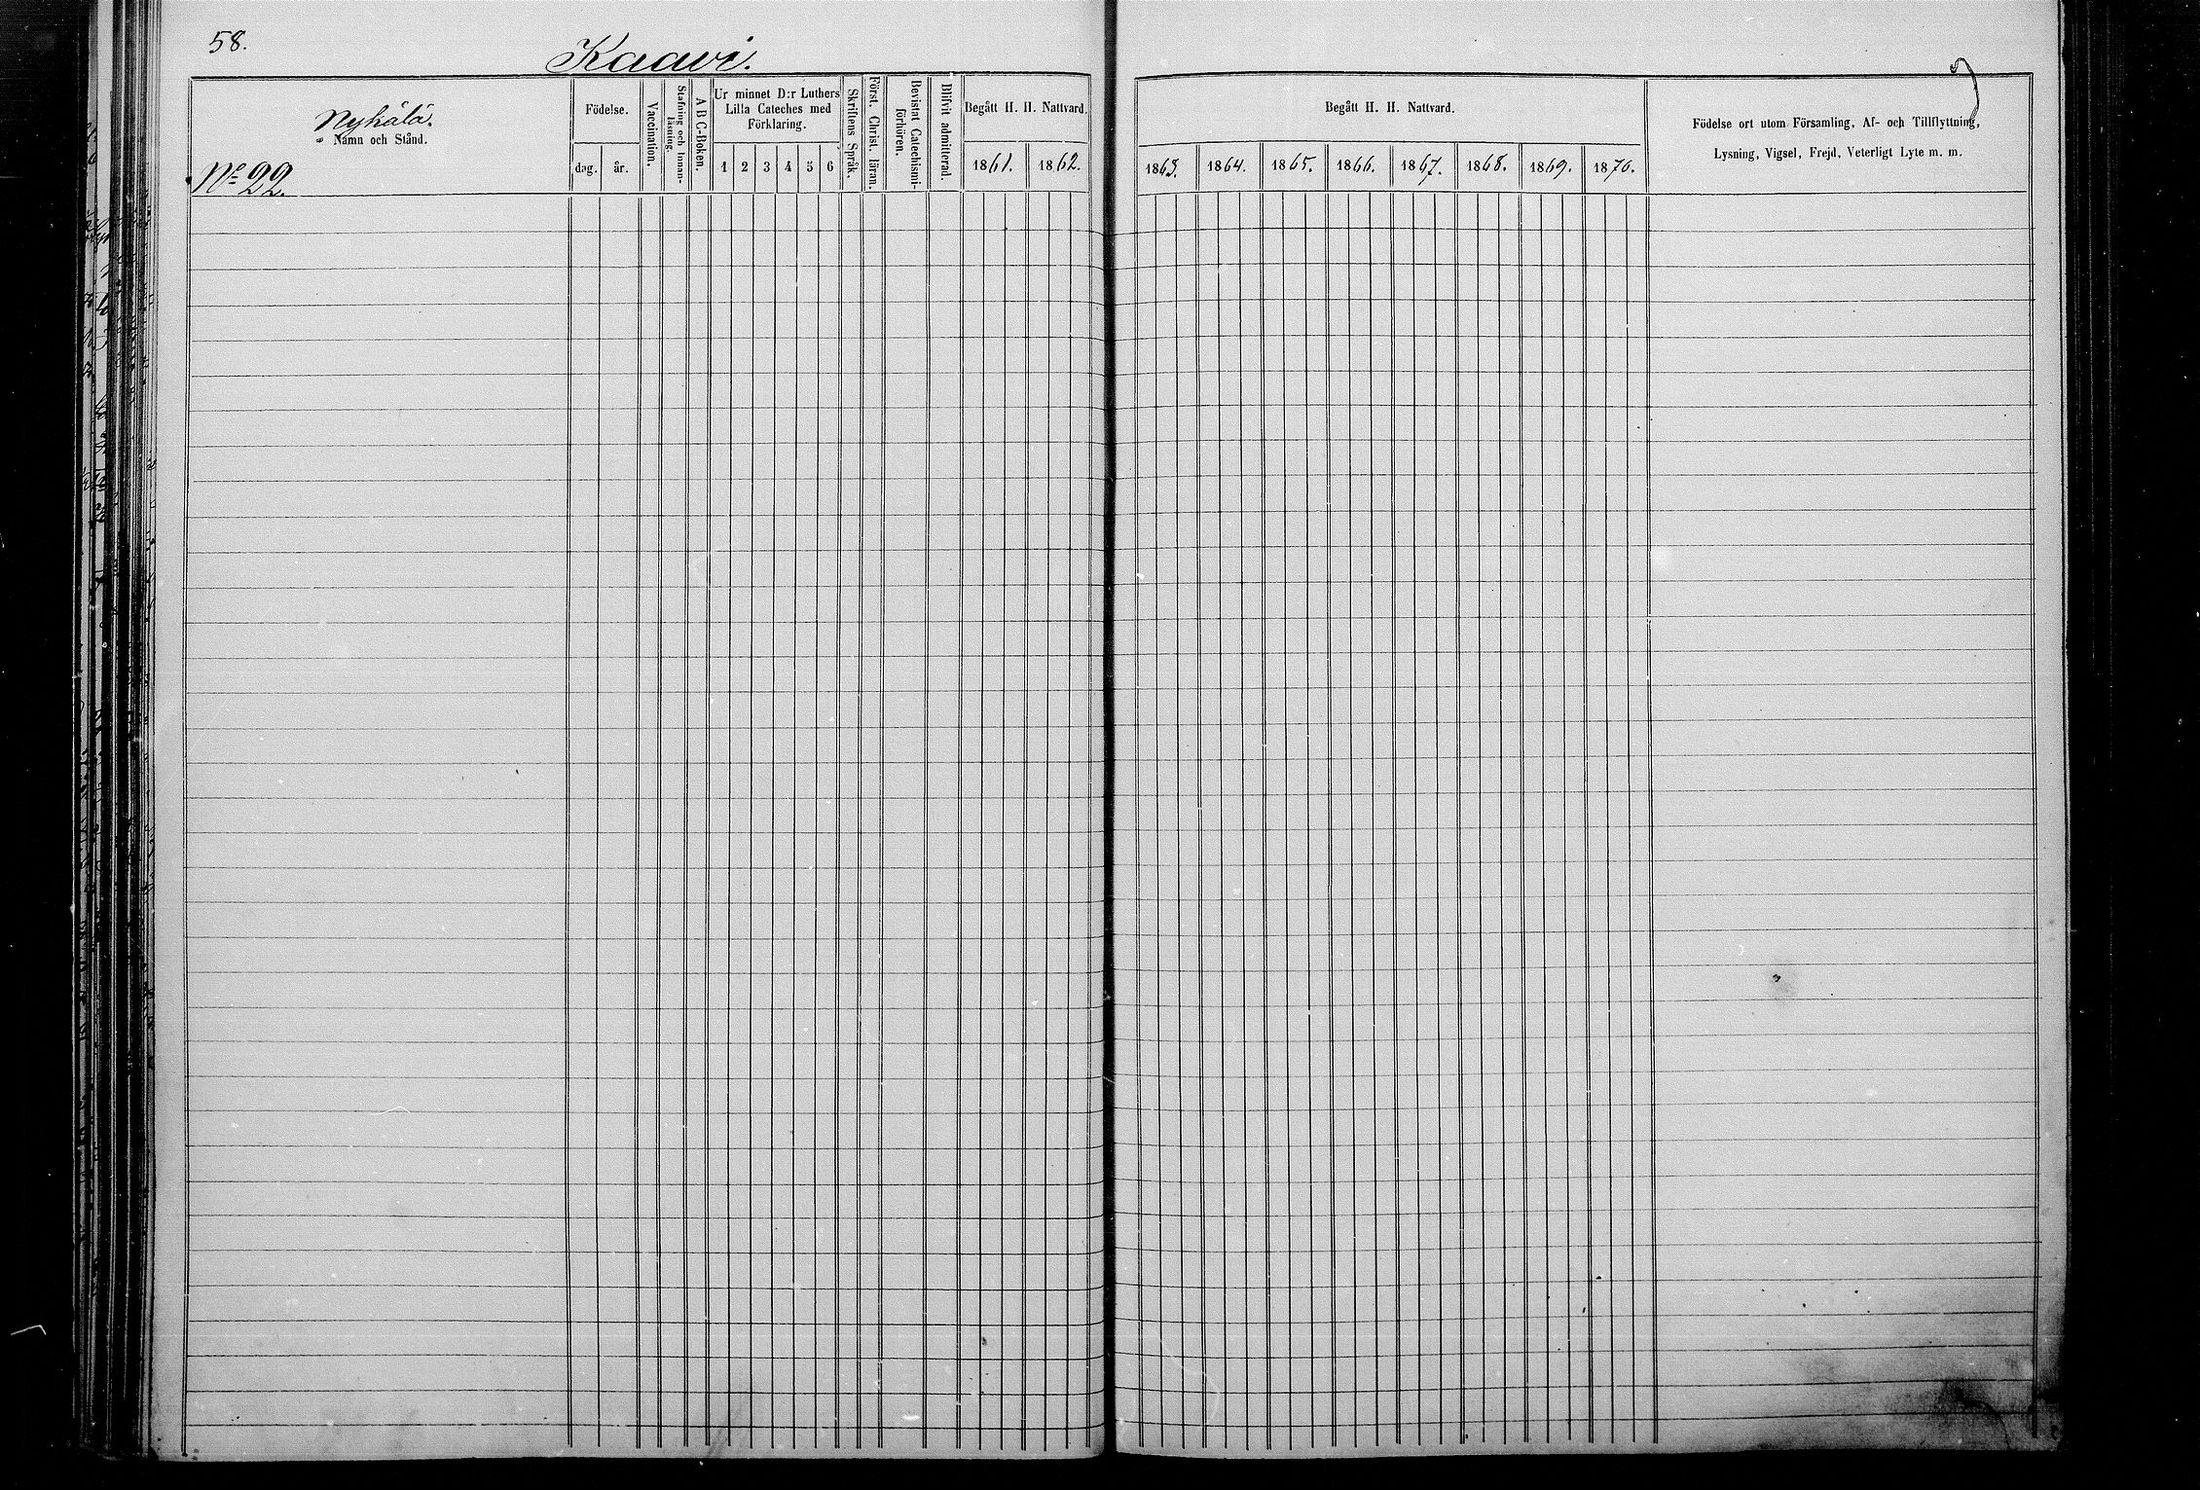 58.
Kaavi.
Nykälä.
Namn och Stånd.
No 22.
Födelse.
dag. år.
Vaccination.
Stafning och Innanläsning.
A B C-Boken.
Ur minnet D:r Luthers
Lilla Cateches med
Förklaring.
1 2 3 4 5 6
Skriftens Språk.
Först. Christ. läran.
Bevistat Catechismi-
förhören.
Blifvit admitterad.
Begått H. H. Nattvard.
1861. 1862.
Begått H. H. Nattvard.
1863. 1864. 1865. 1866. 1867. 1868. 1869. 1870.
Födelse ort utom Församling, Af- och Tillflyttning,
Lysning, Vigsel, Frejd, Veterligt Lyte m. m.